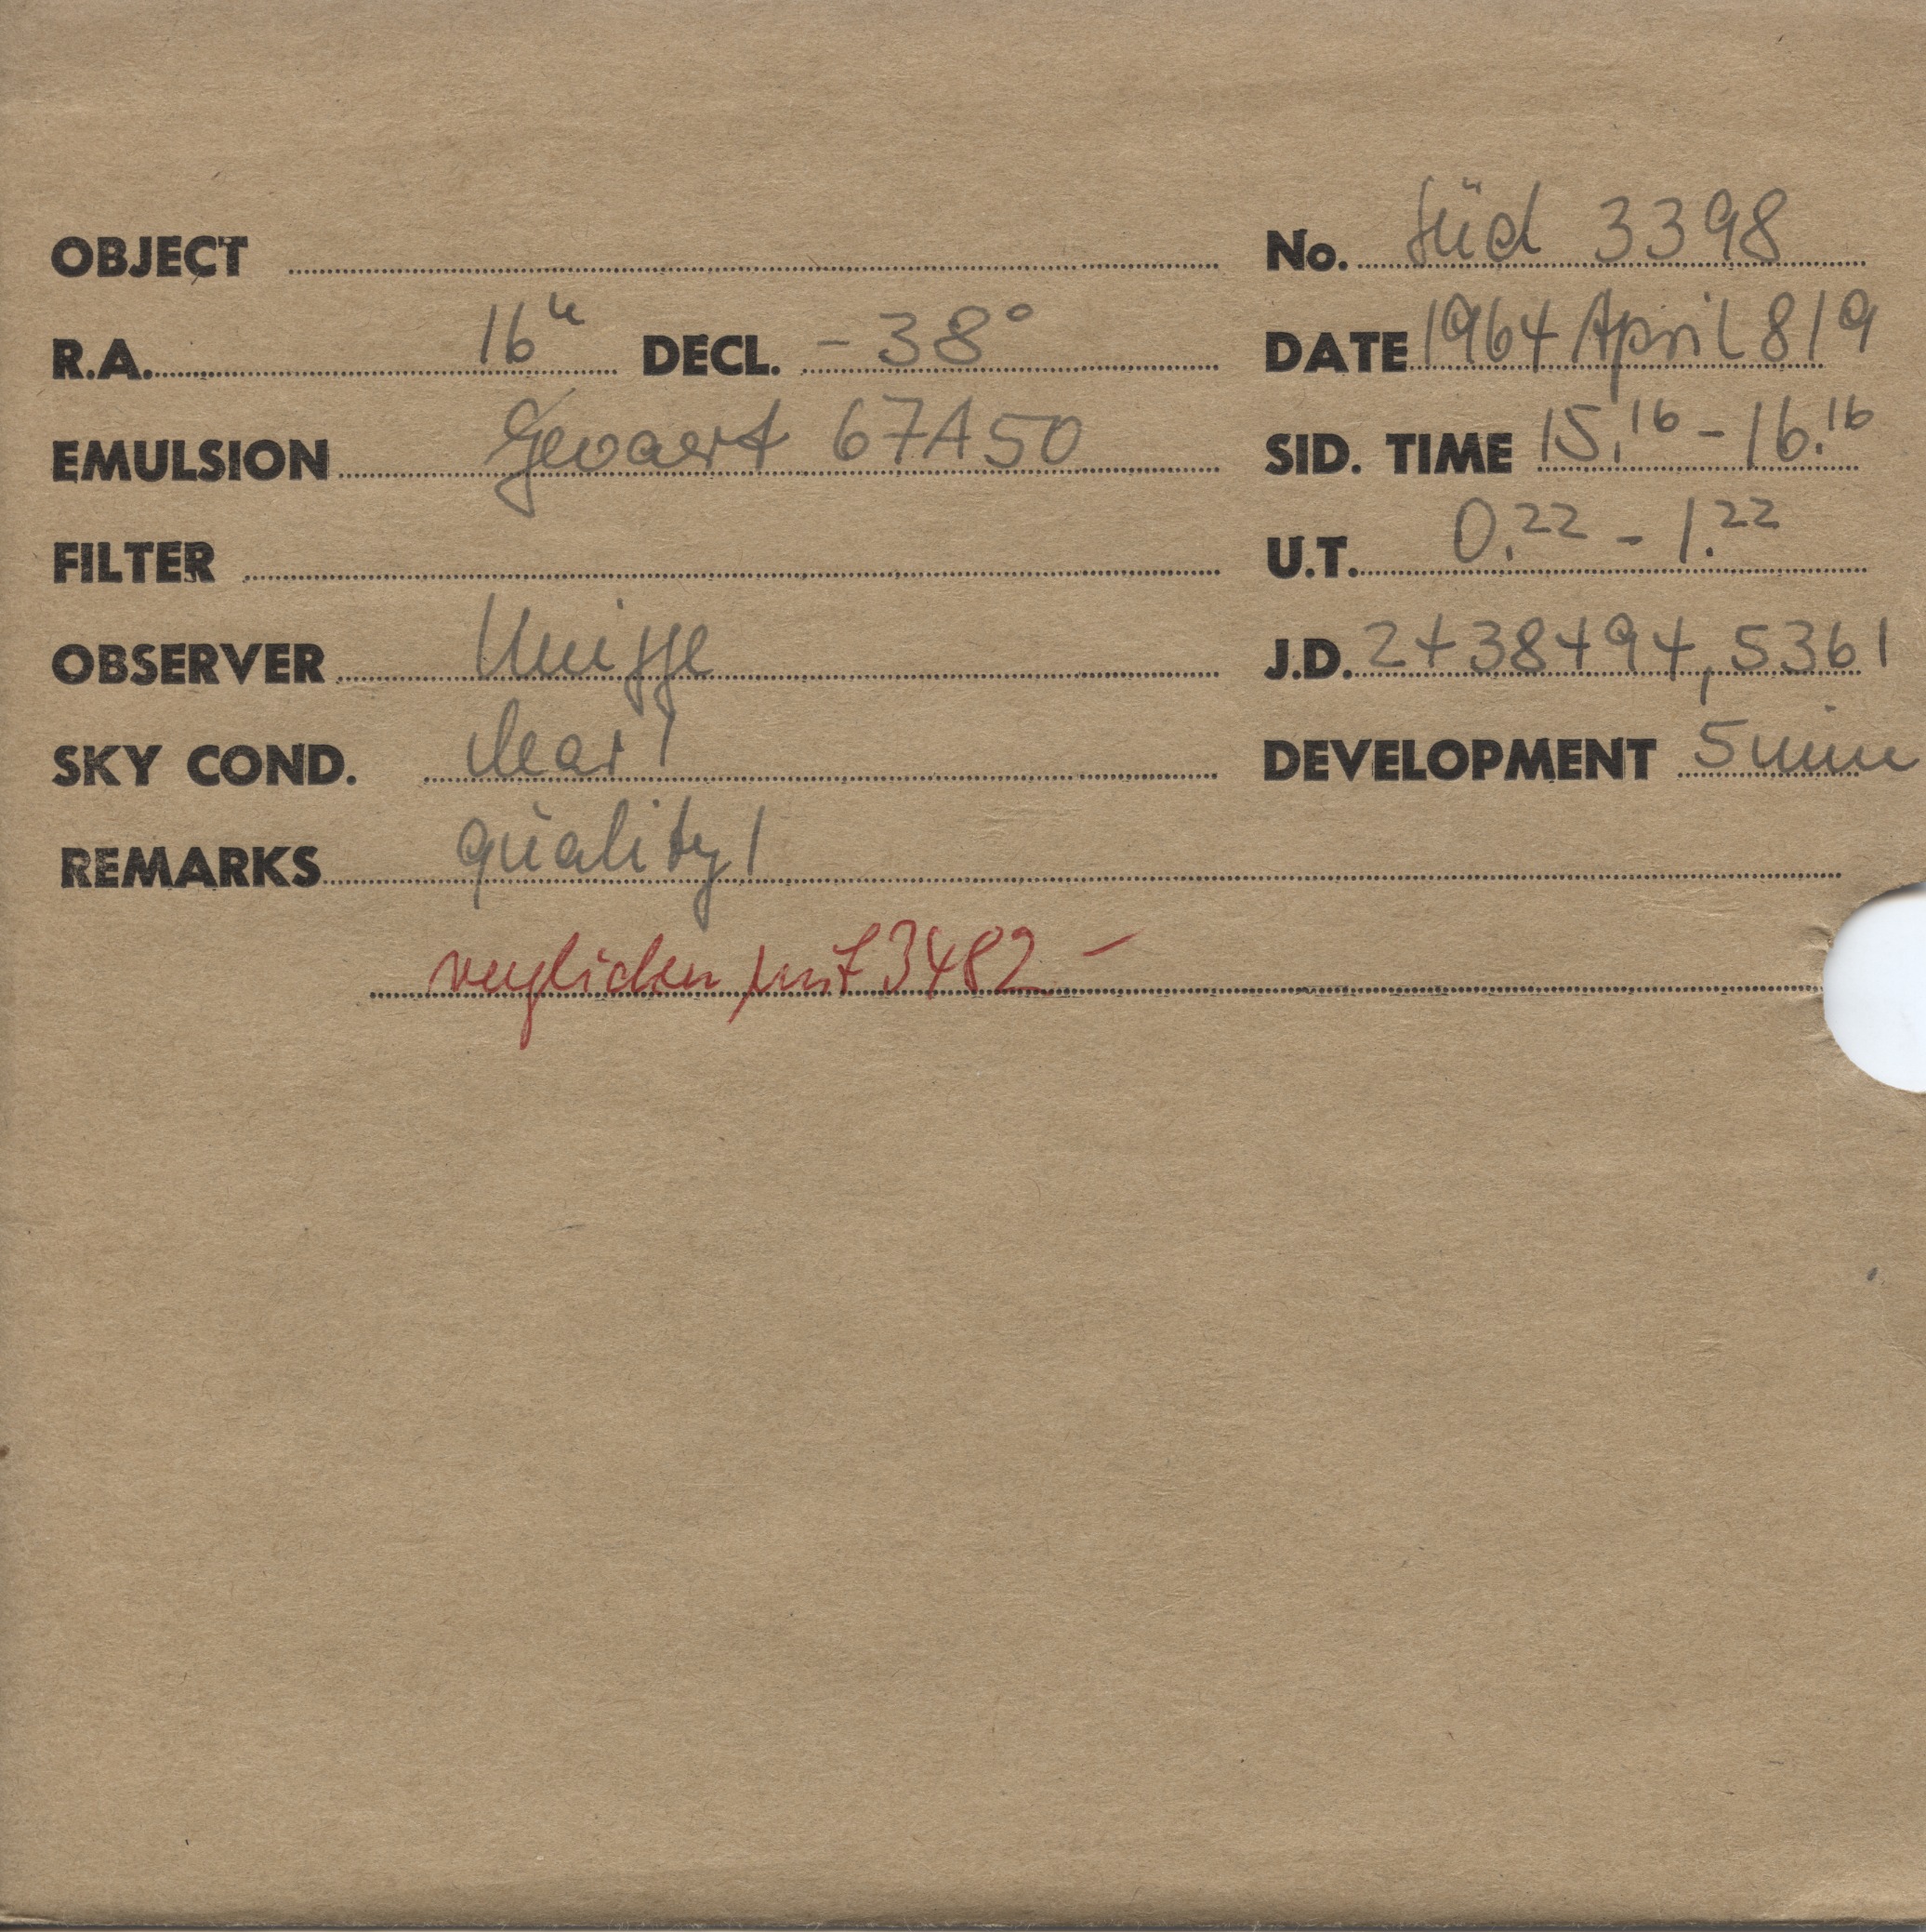 OBJECT No. Süd 3398
R.A. 16h DECL. - 38° DATE 1964 April 8/9
EMULSION Gevaert 67A50 SID. TIME 15.16 - 16.16
FILTER U.T. 0.22 - 1.22
OBSERVER J.D. 2438494,5361
SKY COND. clear! DEVELOPMENT 5 min
REMARKS quality 1
verglichen mit 3482 -